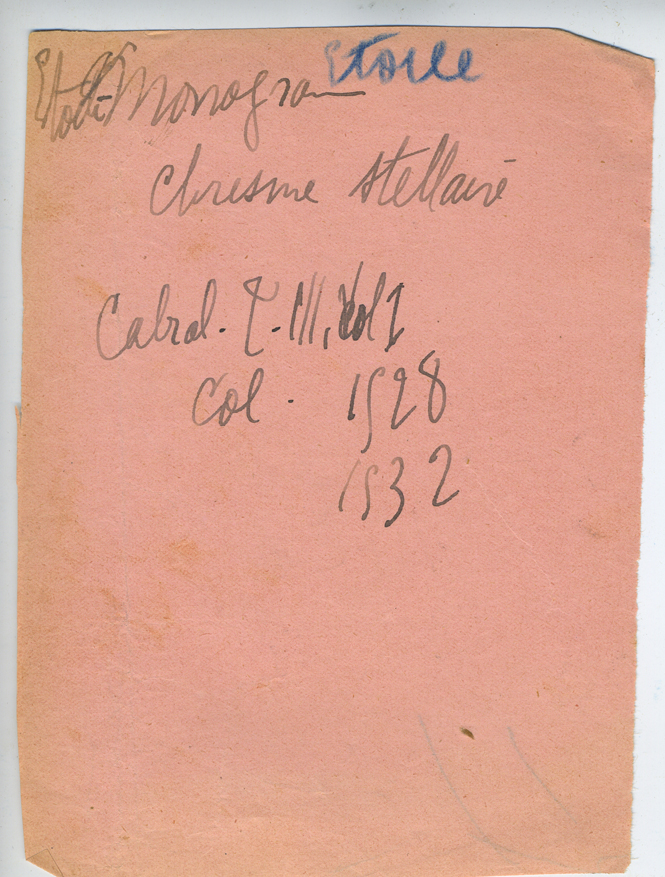 Etoile
Etoile Monogram
Chrisme stellaire
Cabrol. T. III, Vol 1
Col. 1528
1532